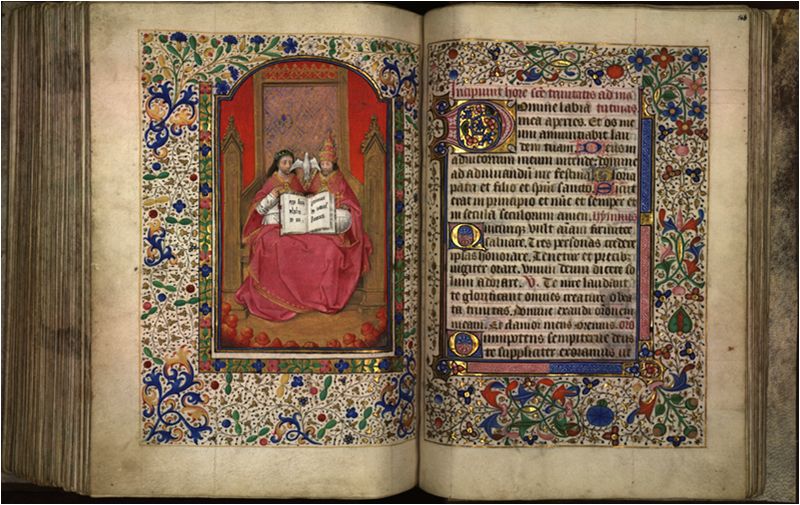 Incipiunt hore scē trinitatis ad ma
Domine labia tutinas
mea aperies. Et os me
um annunciabit lau
dem tuam Deus in
adiutorium meum intende. domine
ad adiuvandū me festina Gloria
patri et filio et spūi sancto Sicut
erat in principio et nūc et semper et
in secula seculorum amen.
Quicunqz vult aīam firmiter
salvare. Tres personas credere
ipsas honorare. Tenetur et precibz
iugiter orare. Unum deum dicere so
lum adorare. V. Te iure laudant
te glorificant omnes creature o bea
ta trinitas. Domine exaudi orōnem
meam. Et clamor meus Oremus. oro
Omnipotens sempiterne deus
te suppliciter exoramus ut